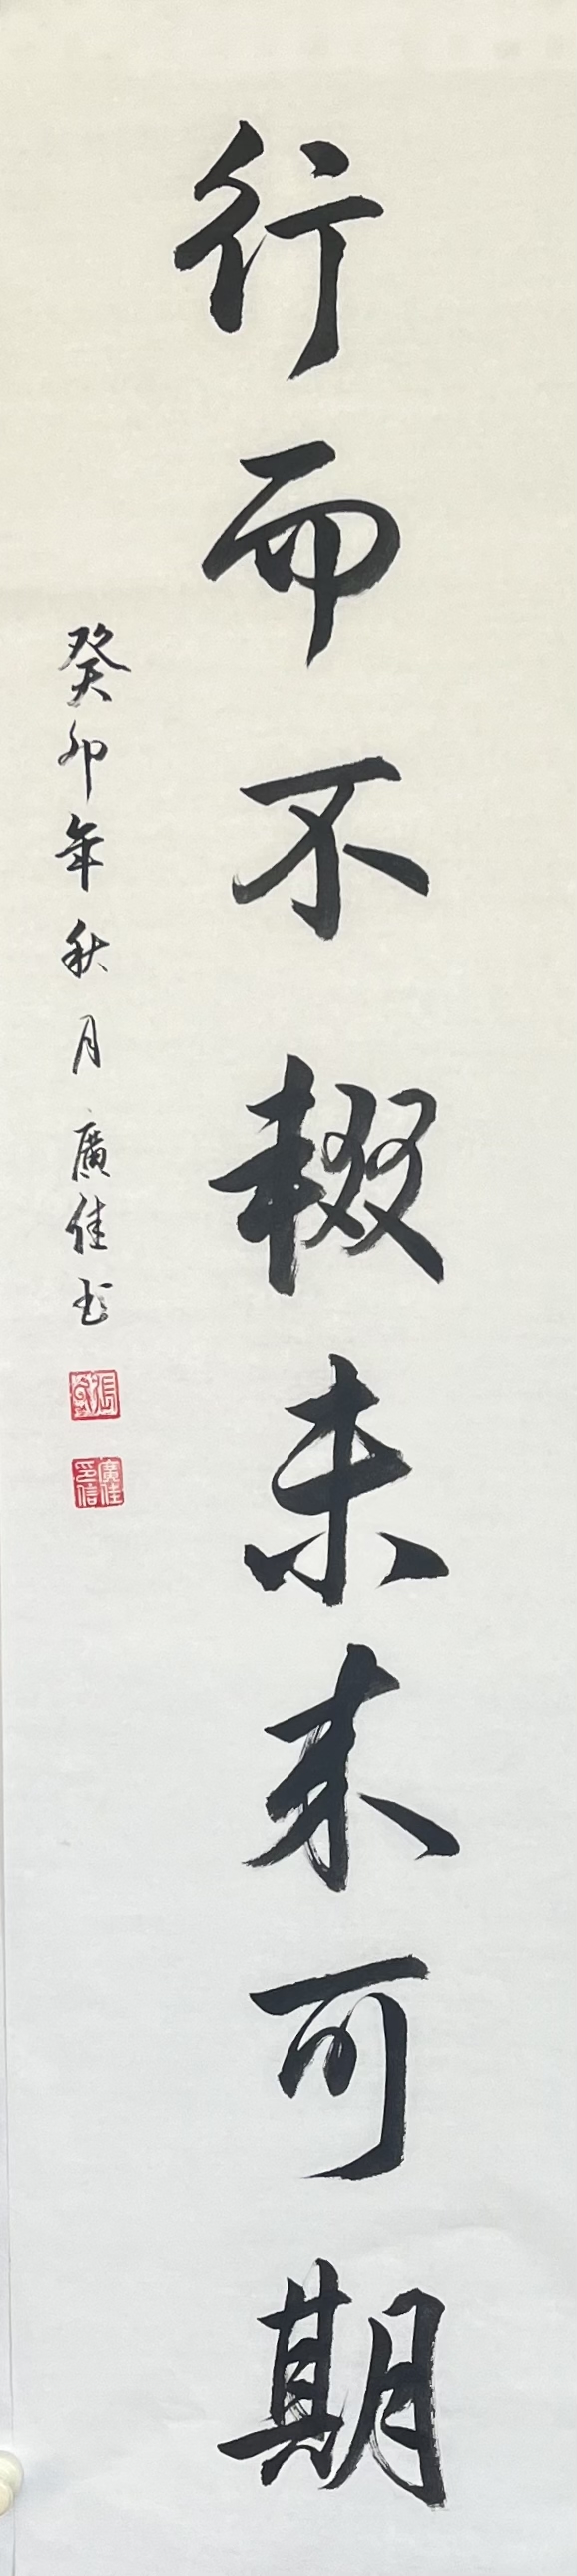 行而不辍未来可期
癸卯年秋月廣佳书
張
廣佳
印信